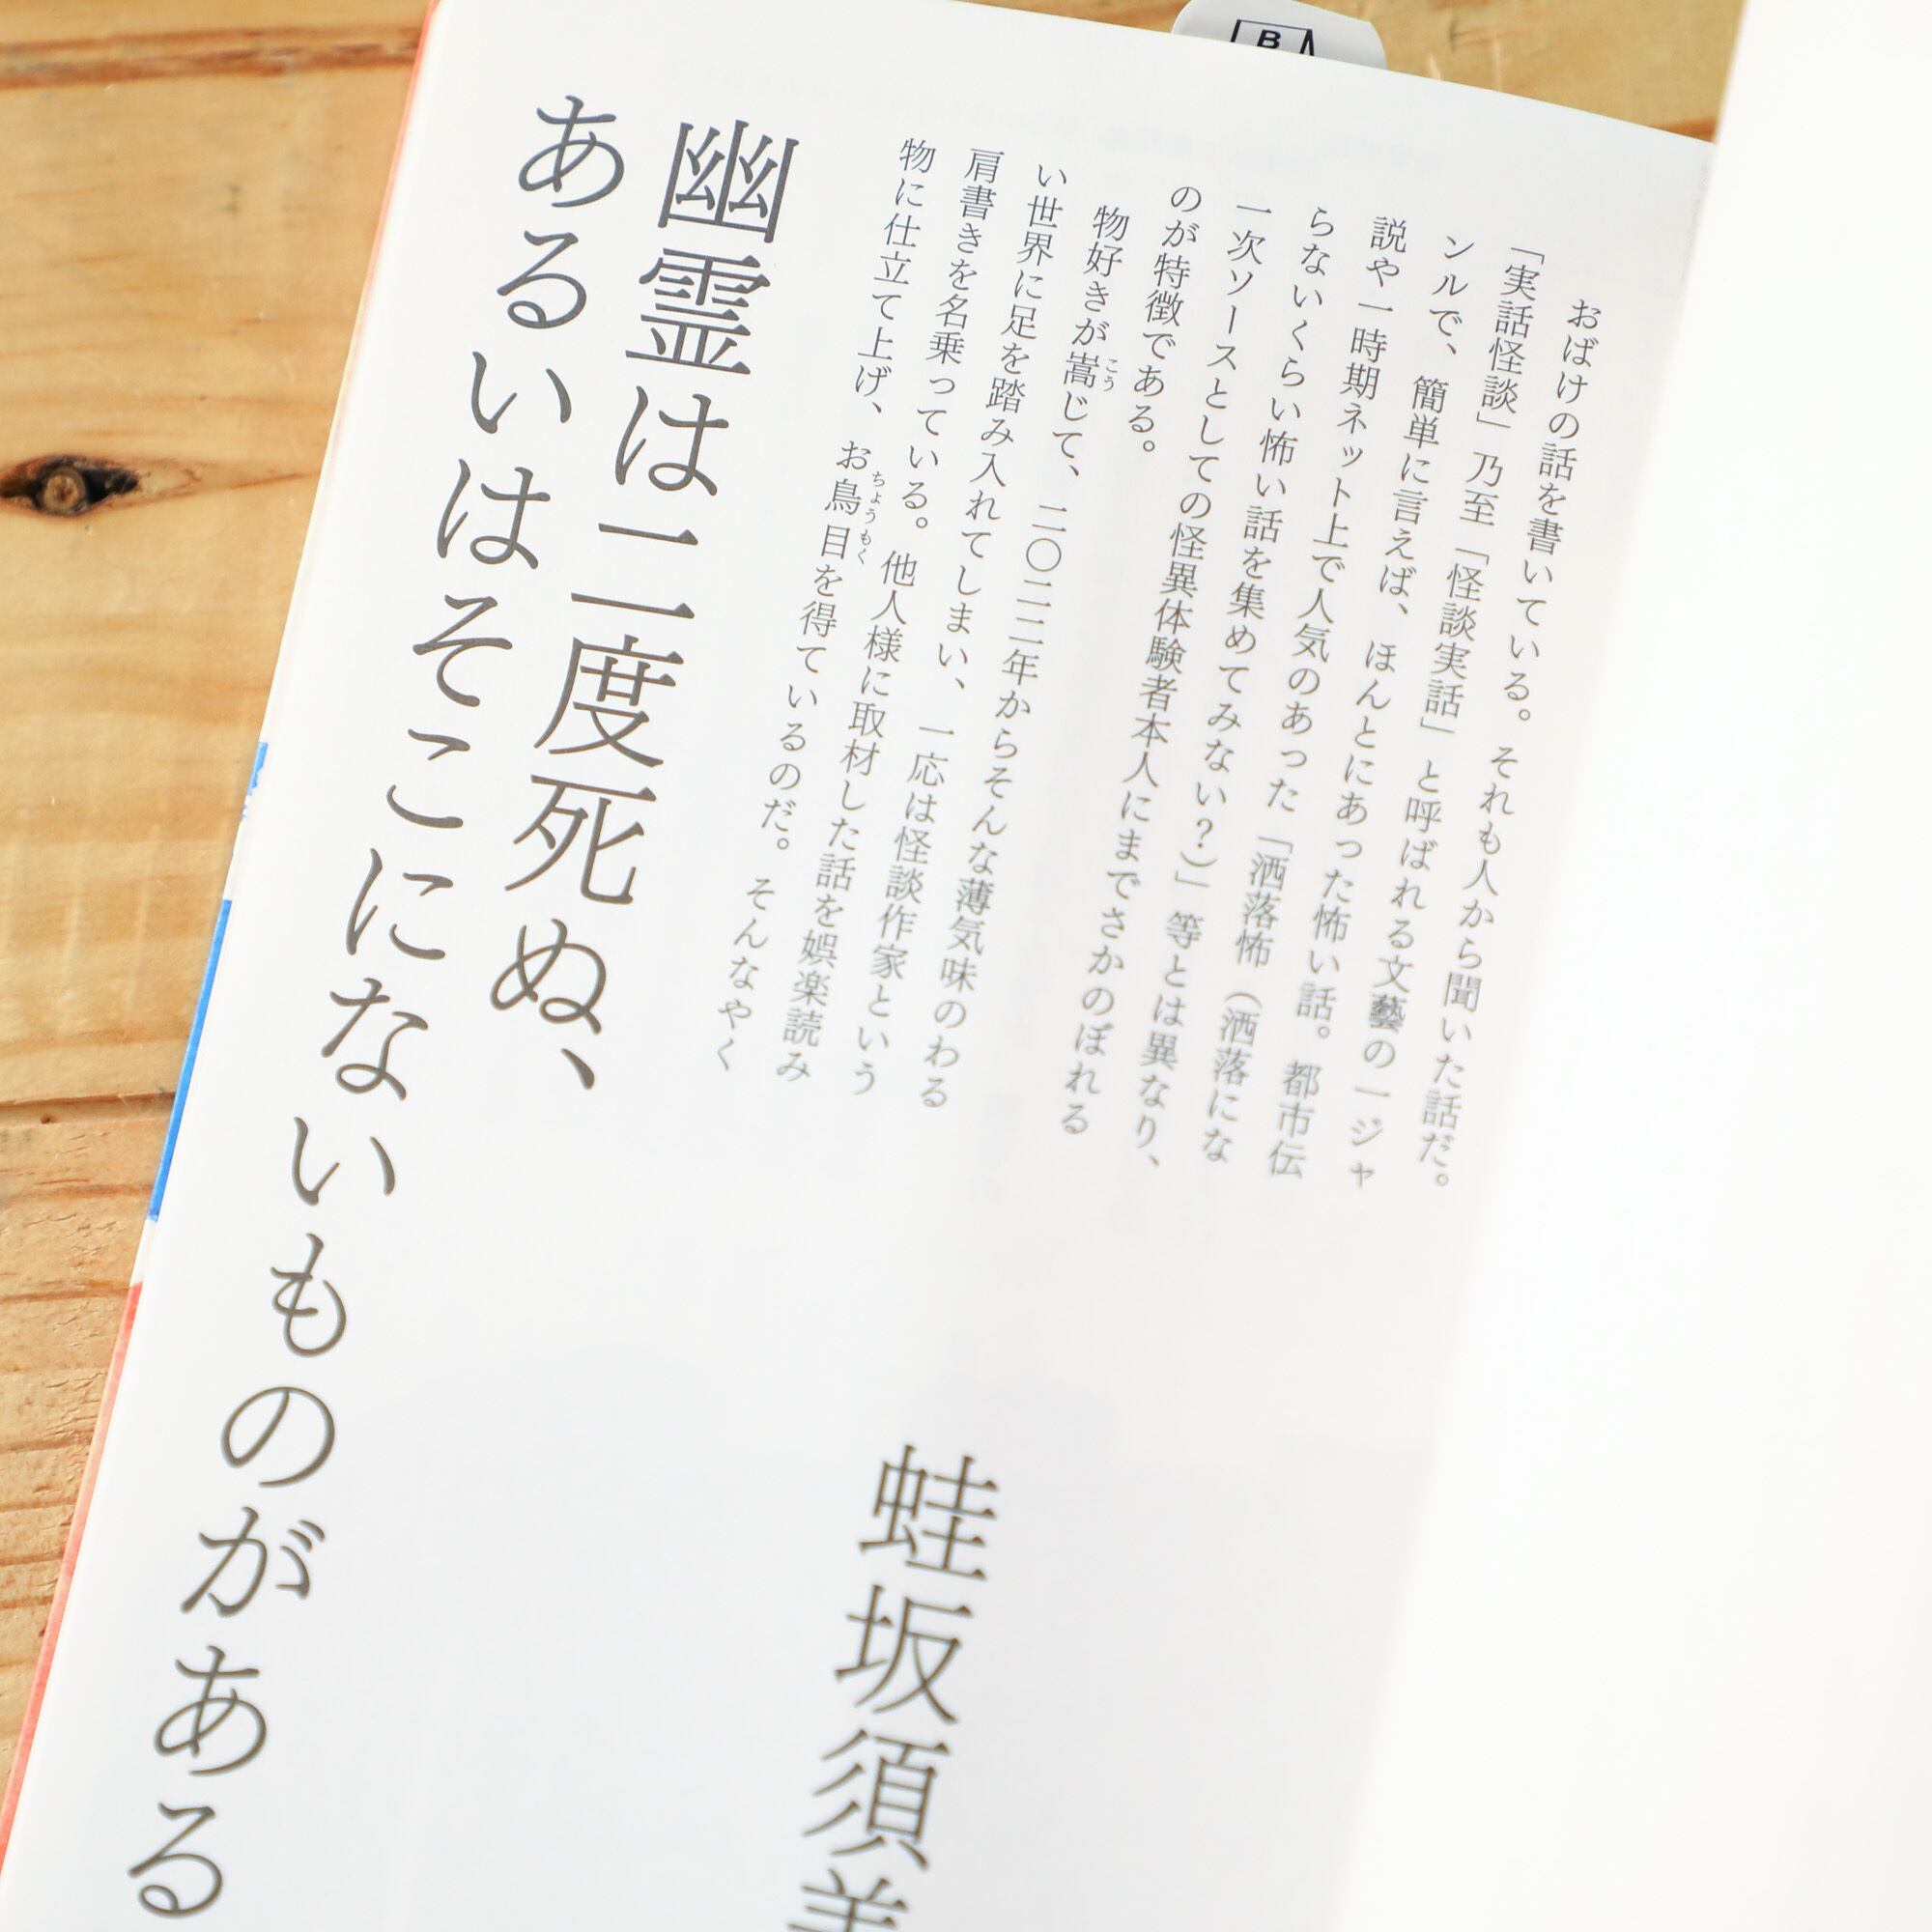 おばけの話を書いている。それも人から聞いた話だ。
「実話怪談」乃至「怪談実話」と呼ばれる文藝の一ジャ
ンルで、簡単に言えば、ほんとにあった怖い話。都市伝
説や一時期ネット上で人気のあった「洒落怖(洒落にな
らないくらい怖い話を集めてみない?)」等とは異なり、
一次ソースとしての怪異体験者本人にまでさかのぼれる
のが特徴である。
物好きが嵩じて、二〇二二年からそんな薄気味のわる
い世界に足を踏み入れてしまい、一応は怪談作家という
肩書きを名乗っている。他人様に取材した話を娯楽読み
物に仕立て上げ、お鳥目を得ているのだ。そんなやく
こう
ちょうもく
幽霊は二度死ぬ、
あるいはそこにないものがある
蛙坂須美
B